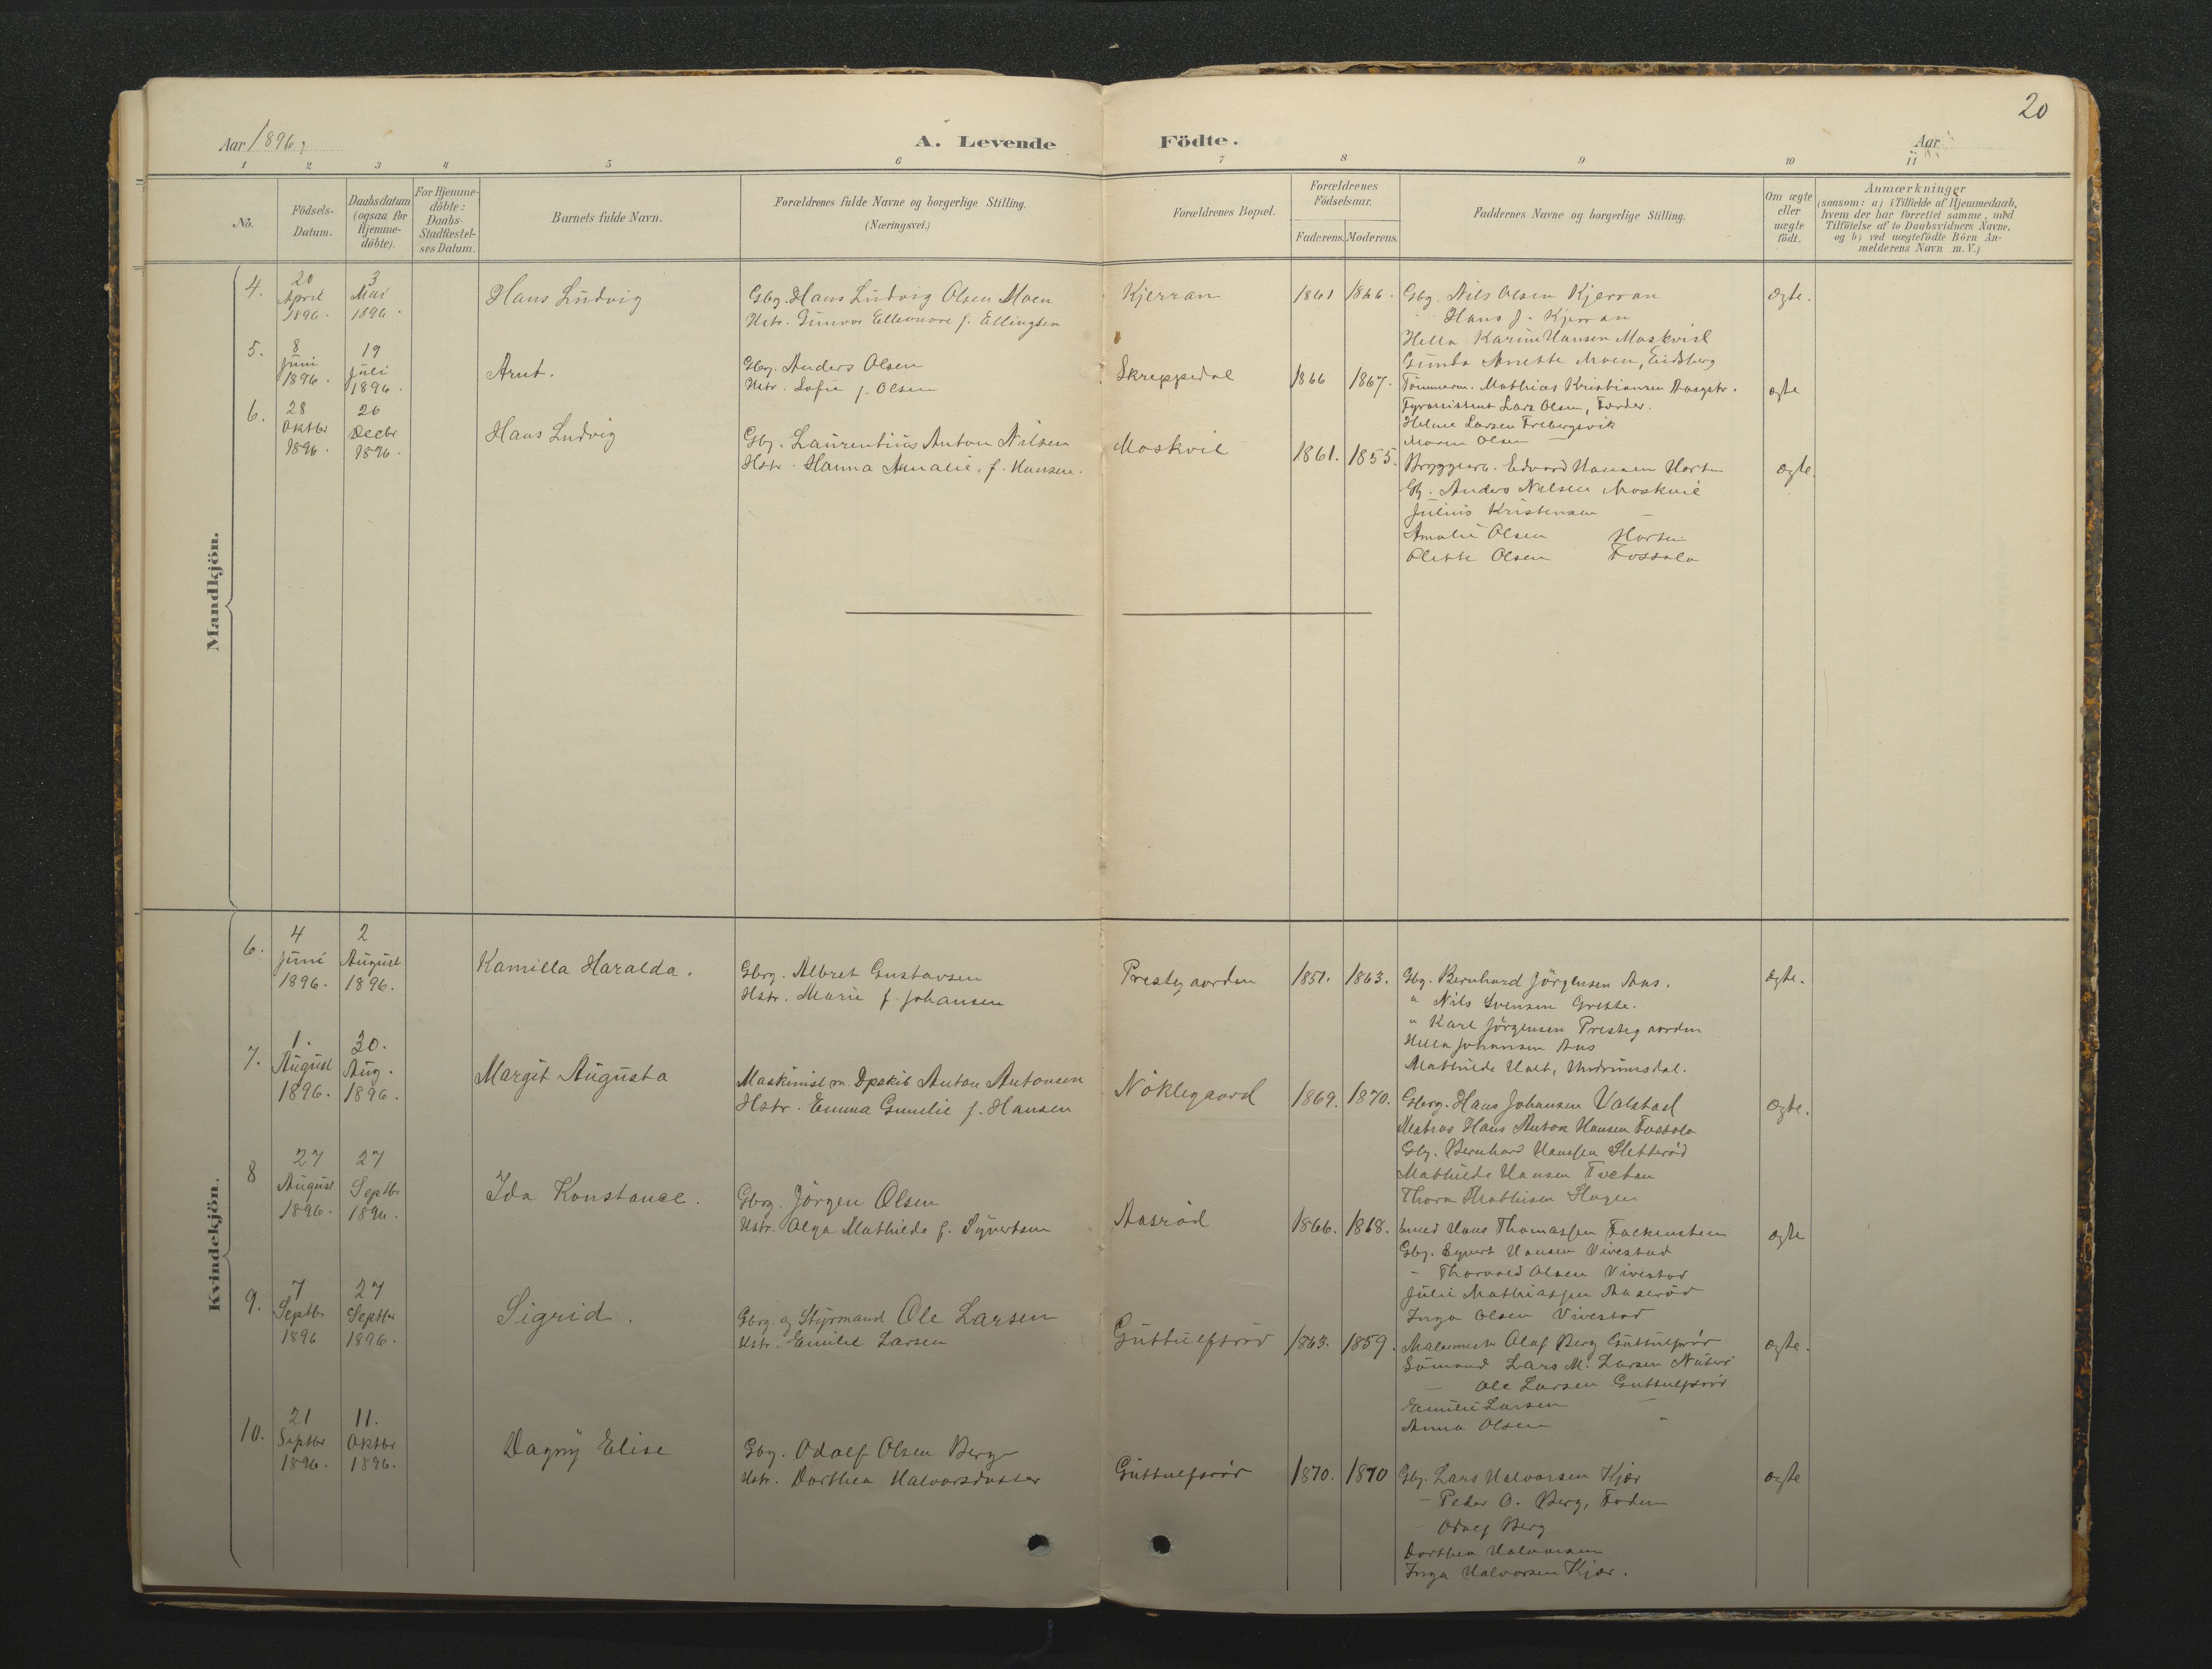 20
Aar 1896,
A. Levende Födte.
Aar
1 2 3 4 5 6 7 8 9 10 11
No.
Födsels-Datum.
Daabsdatum (ogsaa for Hjemme-döbte).
For Hjemme-döbte: Daabs-Stadfæstel-ses Datum.
Barnets fulde Navn.
Forældrenes fulde Navne og borgerlige Stilling.
(Næringsvei.)
Forældrenes Bopæl.
Forældrenes Födselsaar.
Faderens. Moderens.
Faddernes Navne og borgerlige Stilling.
Om ægte eller uægte födt.
Anmærkninger
(saasom: a) i Tilfælde af Hjemmedaab,
hvem der har forrettet samme, med
Tilföielse af to Daabsvidners Navne,
og b) ved uægtefödte Börn An-
melderens Navn m. V.)
Mandkjön.
4. 20 April 1896. 3 Mai 1896. Hans Ludvig
Gbg. Hans Ludvig Olsen Moen
Hstr. Gunvor Elleonore f. Ellingsen
Kjerran 1861 1866.
Gbg. Nils Olsen Kjerran
Hans J. Kjerran
Hella Karine Hansen Moskvil
Gunda Anette Moen, Eidsberg
ægte.
5. 8 Juni 1896. 19 Juli 1896. Arnt.
Gbg. Anders Olsen
Hstr. Sofie f. Olsen
Skreppedal 1866 1867.
Tömmerm. Mathias Kristiansen Aasgstr.
Fyrassistent Lars Olsen, Færder.
Helene Larsen Frebergsvik
Maren Olsen —
ægte
6. 28 Oktbr 1896. 26 Decbr 1896. Hans Ludvig
Gbg. Laurentius Anton Nilsen
Hstr. Hanna Amalie, f. Hansen.
Moskvil 1861. 1855.
Edvard Hansen Horten
Gb. Anders Nilsen Moskvil
Julius Kristensen —
Amalie Olsen Horten
Olette Olsen Fossala
ægte.
Kvindekjön.
6. 4 Juni 1896. 2 August 1896. Kamilla Haralda.
Gbrg. Albret Gustavsen
Hstr. Marie f. Johansen
Prestegaarden 1851. 1863.
Gbg. Bernhard Jörgensen Aas.
" Nils Svensen Grette.
" Karl Jörgensen Prestegaarden
Hella Johansen Aas
Mathilde Holt, Undrumsdal.
ægte.
7. 1. August 1896. 30. Aug. 1896. Margit Augusta
Maskinist m. Dpskib Anton Antonsen
Hstr. Emma Gunelie f. Hansen
Nöklegaard 1869. 1870.
Gbrg. Hans Johansen Valstad
Matros Hans Anton Hansen Fossala
Gbg. Bernhard Hanssen Sletteröd
Mathilde Hansen Tvetan
Thora Mathisen Skagen
ægte.
8 27 August 1896. 27 Septbr 1896. Ida Konstance.
Gbrg. Jörgen Olsen
Hstr. Olga Mathilde f. Syvertsen
Aasröd 1866. 1868.
Smed Hans Thomassen Falkensten
Gbg. Syvert Hansen Vivestad
- Thorvald Olsen Vivestad
Julie Mathiassen Aaseröd
Inga Olsen Vivestad
ægte
9. 7 Septbr 1896 27 Septbr 1896. Sigrid.
Gbrg. og Styrmand Ole Larsen
Hstr. Emilie Larsen
Guttulfsröd 1863. 1859.
Malermestr Olaf Berg Guttulfsröd
Sömand Lars M. Larsen Nöterö
— Ole Larsen Guttulfsröd
Emilie Larsen —
Anna Olsen "
ægte.
10. 21 Septbr 1896. 11. Oktbr 1896. Dagny Elise
Gbg. Odolf Olsen Berg
Hstr. Dorthea Halvorsdatter
Guttulfsröd 1870. 1870
Gbg. Lars Halvorsen Kjær
- Peder O. Berg, Foden
- Odolf Berg
Dorthea Halvorsen
Inga Halvorsen Kjær.
ægte